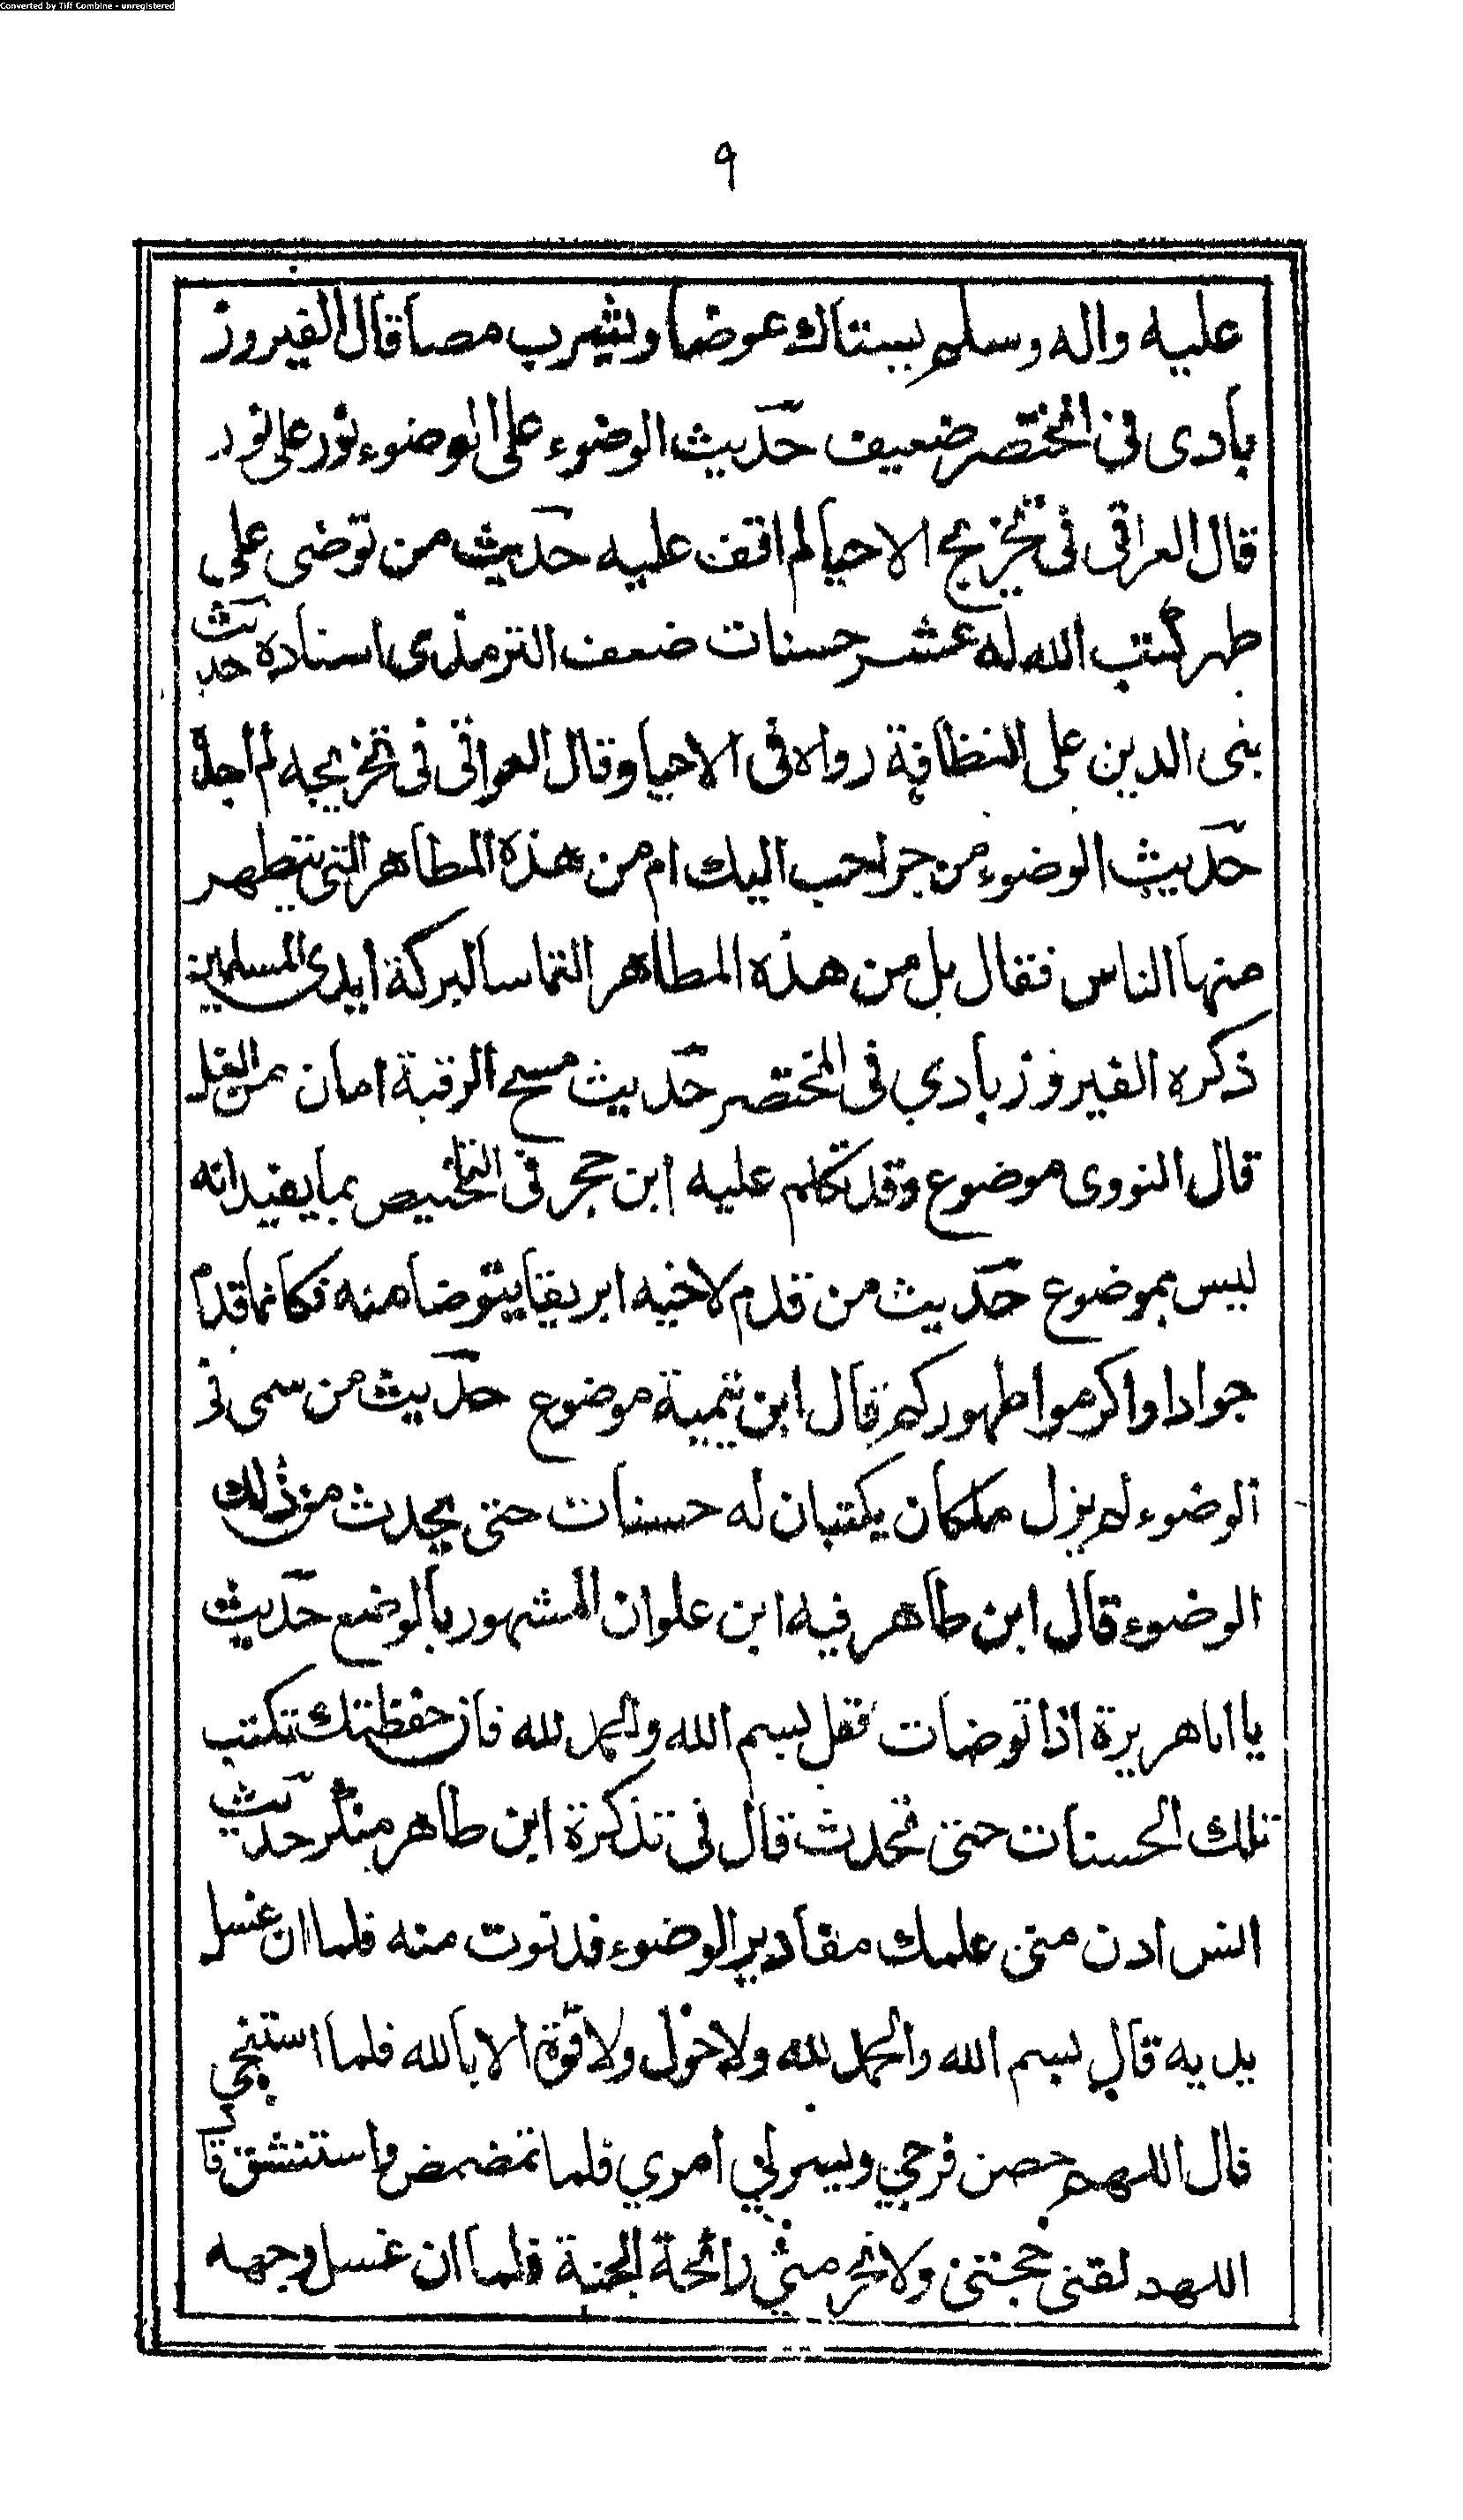 Converted by Tiff Combine - unregistered
٩
عليه واله وسلم يستاك عوضا ويشرب مصا قال الفيروز
بادى فى المختصر ضعيف حديث الوضوء على الوضوء نور على نور
قال العراقى فى تخريج الاحيا لم اقف عليه حديث من توضى على
طهر كتب الله له عشر حسنات ضعف الترمذى اسناده حديث
بنى الدين على النظافة رواه فى الاحيا وقال العراقى فى تخريجه لم اجده
حديث الوضوء من جر احب اليك ام من هذه المطاهر التى يتطهر
منها الناس فقال بل من هذه المطاهر التماسا لبركة ايدى المسلمين
ذكره الفيروزبادي فى المختصر حديث مسح الرقبة امان من الغل
قال النووى موضوع وقد تكلم عليه ابن حجر فى التلخيص بما يفيد انه
ليس بموضوع حديث من قدم لاخيه ابريقا يتوضا منه فكانما قدم
جوادا واكرموا طهوركم قال ابن تيمية موضوع حديث من سمى فى
الوضوء لم يزل ملكان يكتبان له حسنات حتى يحدث من ذلك
الوضوء قال ابن طاهر فيه ابن علوان المشهور بالوضع حديث
يا اباهريرة اذا توضات فقل بسم الله والحمد لله فان حفظتك تكتب
تلك الحسنات حتى تحدث قال فى تذكرة ابن طاهر منكر حديث
انس ادن منى علمك مقادير الوضوء فدنوت منه فلما ان غسل
يديه قال بسم الله والحمد لله ولا حول ولا قوة الا بالله فلما استنجي
قال اللهم حصن فرجي ويسر لي امري فلما تمضمض واستنشق قال
اللهم لقنى حجتى ولا تحرمني رائحة الجنة فلما ان غسل وجهه